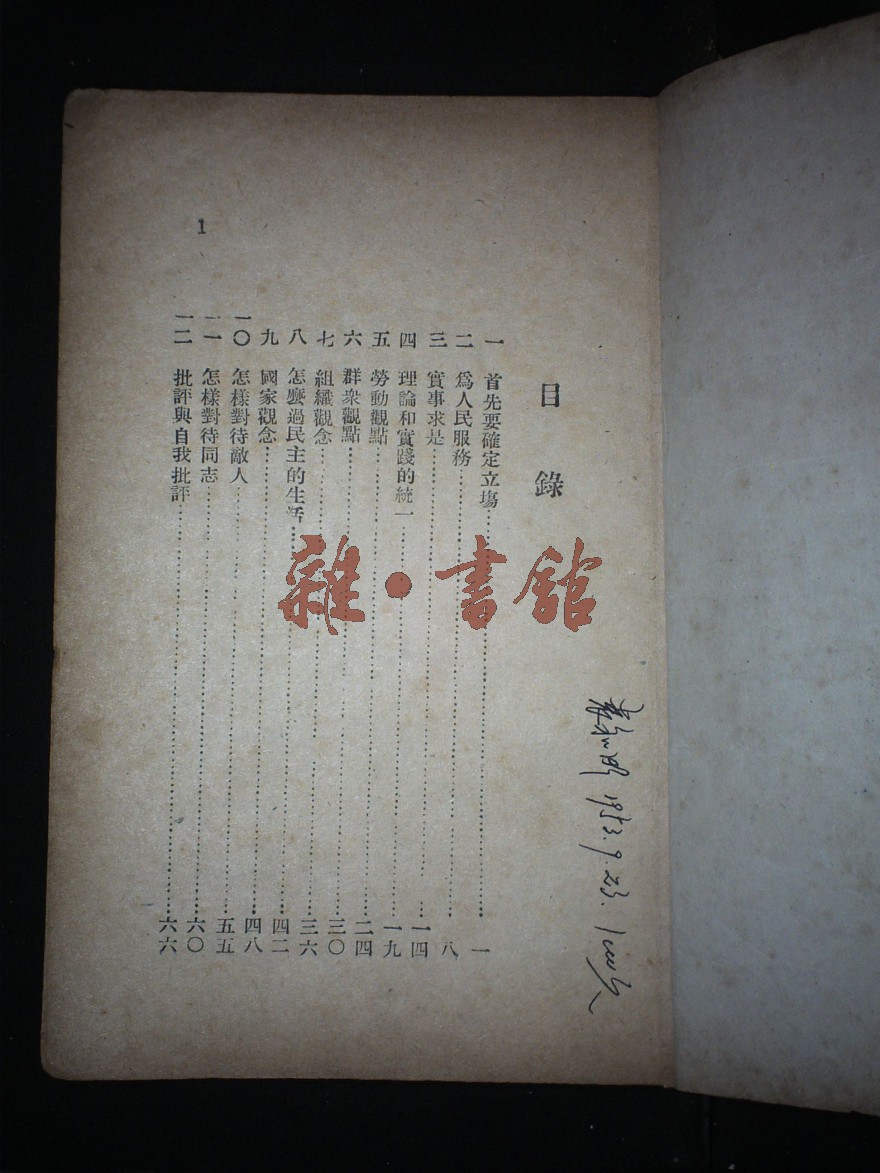 目錄
一 首先要確定立場……一
二 爲人民服務……八
三 實事求是……一四
四 理論和實踐的統一……一九
五 勞動觀點……二四
六 群衆觀點……三〇
七 組織觀念……三六
八 怎麼過民主的生活……四二
九 國家觀念……四八
一〇 怎樣對待敵人……五五
一一 怎樣對待同志……六〇
一二 批評與自我批評……六六
1
1953.9.23.
雜·書館